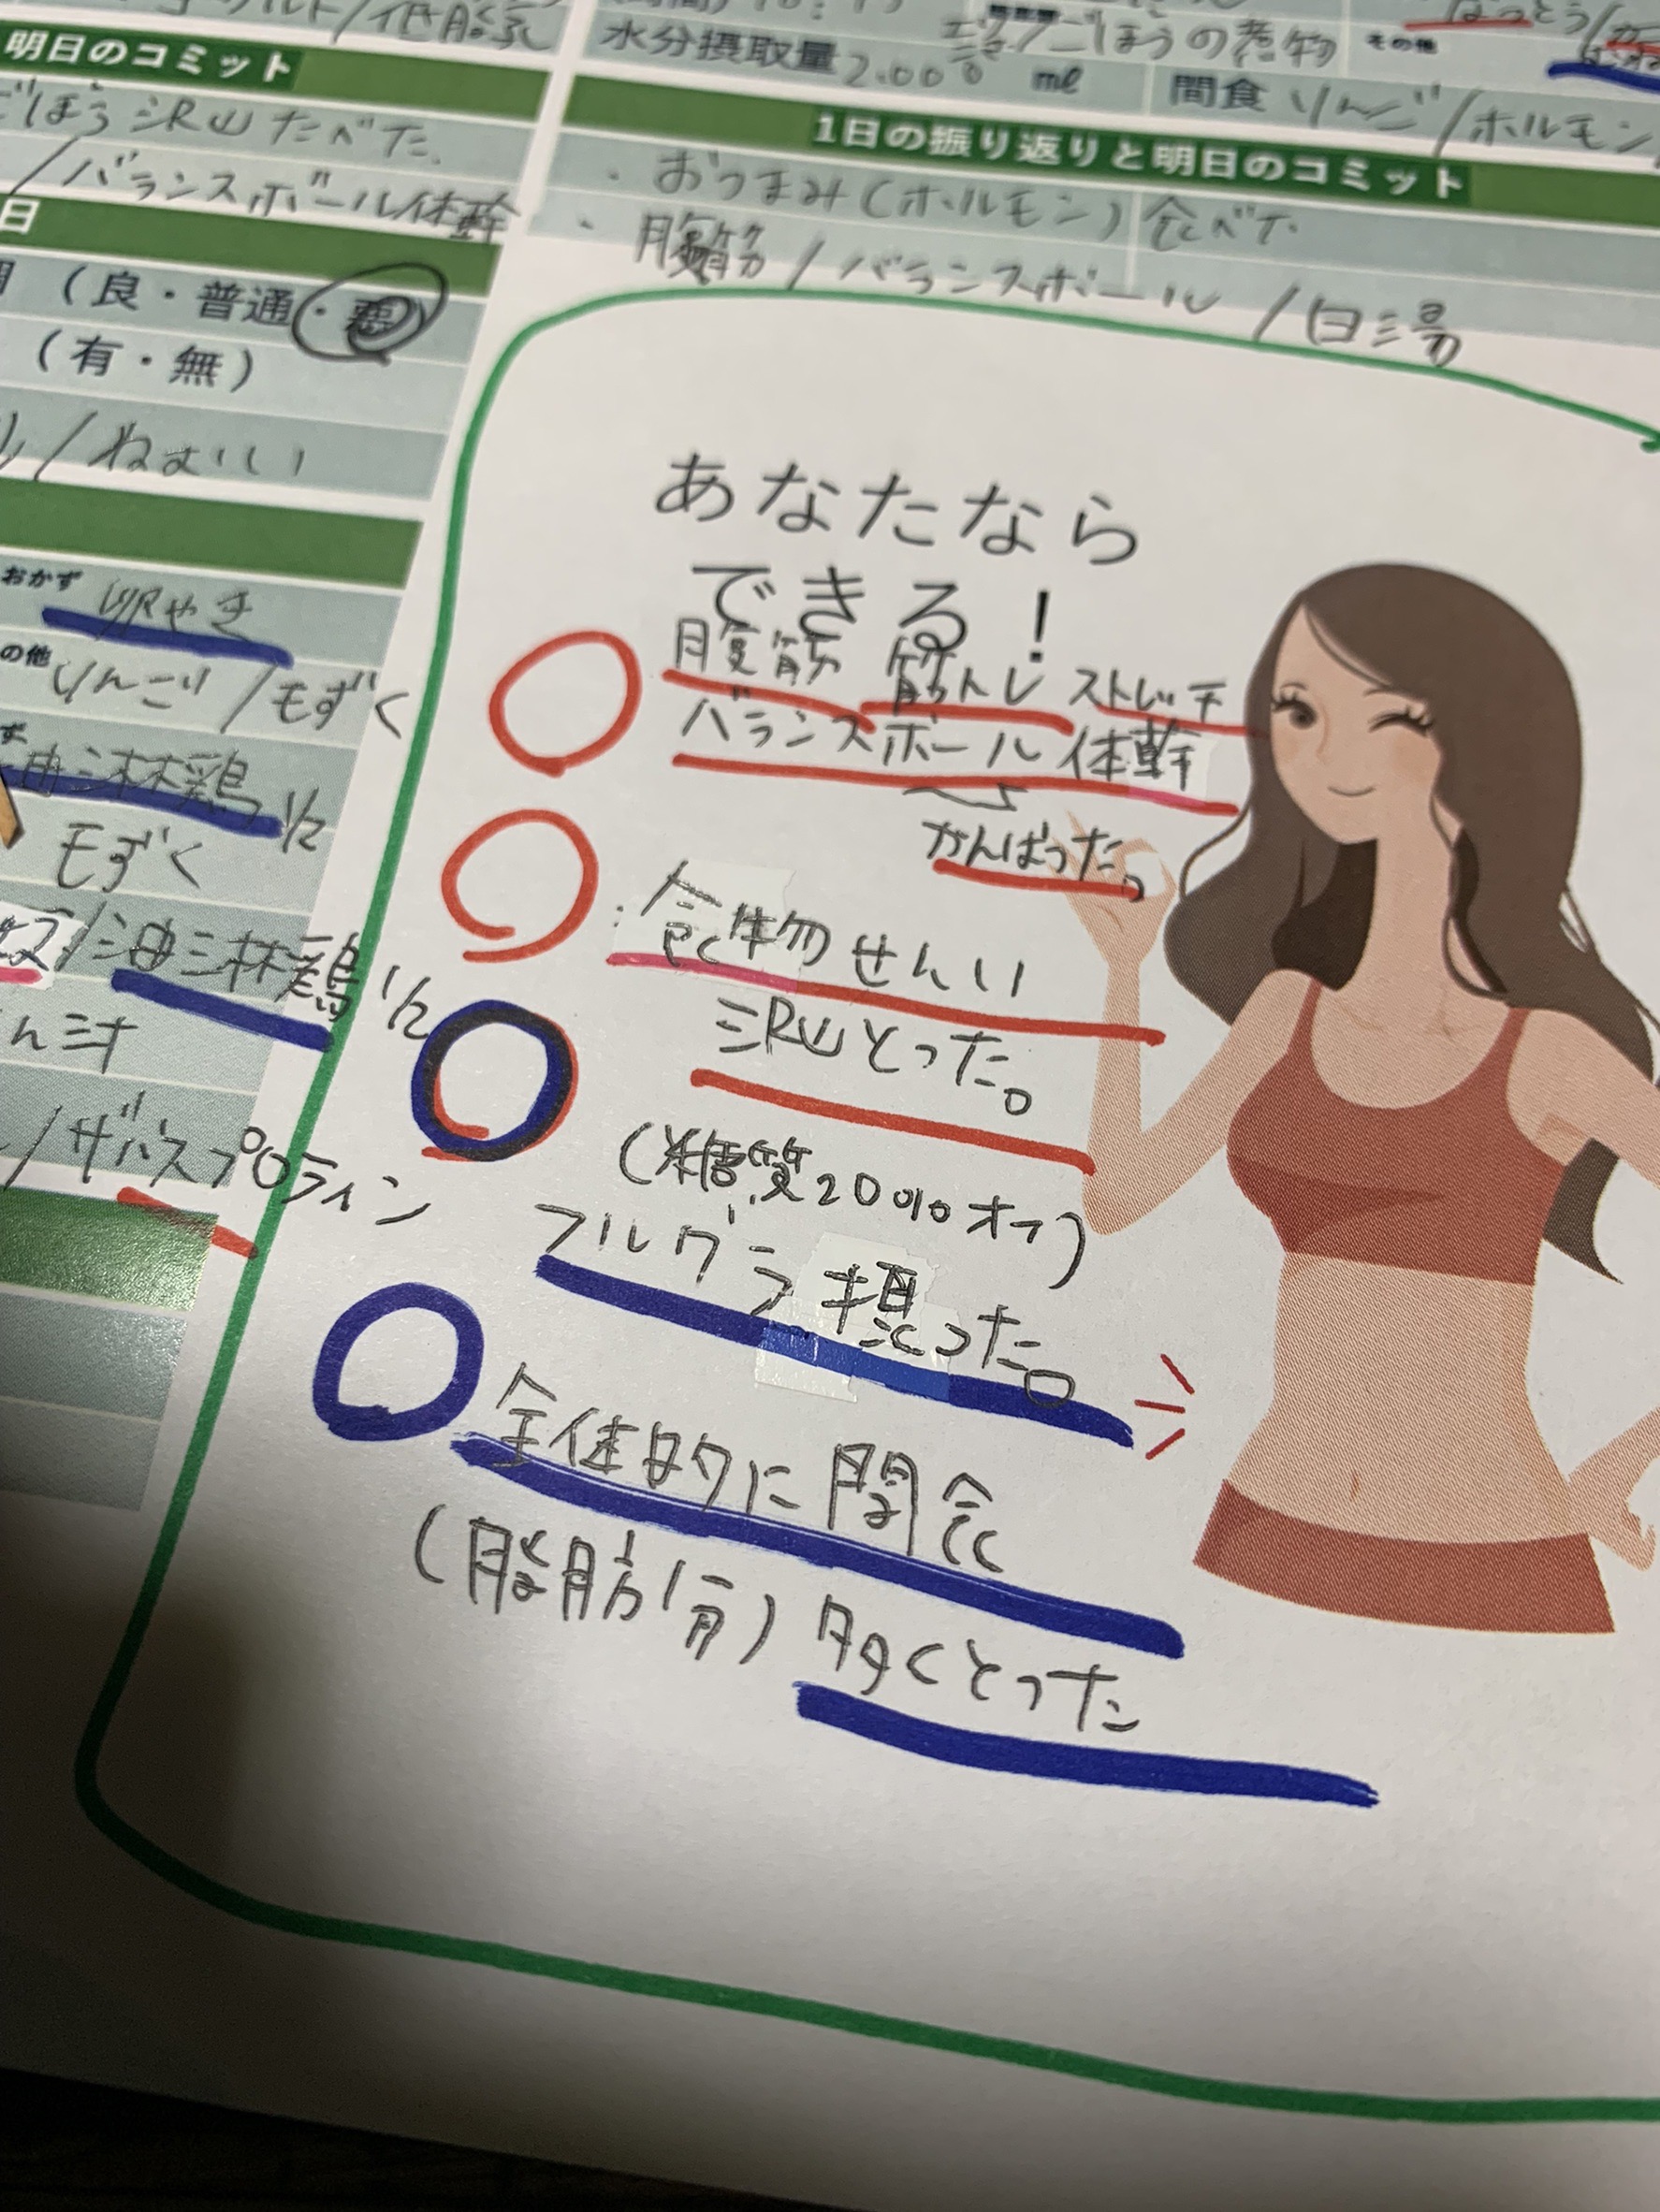 明日のコミット
ごぼう沢山たべた。
/バランスボール体幹
日
(良・普通・悪)
(有・無)
/ねむいい
おかず 卵やき
の他 りんご/もずく
油淋鶏 1/2
もずく
/油淋鶏 1/2
/ザバスプロテイン
水分摂取量 2.000 ml
ごぼうの煮物
その他
間食 りんご/ホルモン
1日の振り返りと明日のコミット
・おつまみ(ホルモン)食べた
・腹筋/バランスボール/白湯
あなたなら
できる!
腹筋 筋トレ ストレッチ
バランスボール 体幹
がんばった。
食物せんい
沢山とった。
(糖質20%オフ)
フルグラ摂った。
全体的に間食
(脂肪分)多くとった